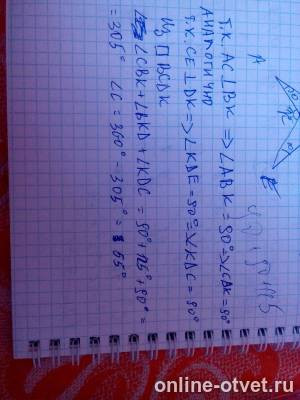 Т.К. AC⊥BK => ∠ABK = 90° => ∠CBK = 90°
Аналогично
Т.К. CE⊥DK => ∠KDE = 90° => ∠KDC = 90°
Из BCDK
∠CBK + ∠BKD + ∠KDC = 90° + 125° + 90° =
= 305° ∠C = 360° - 305° = 55°
A
online-otvet.ru